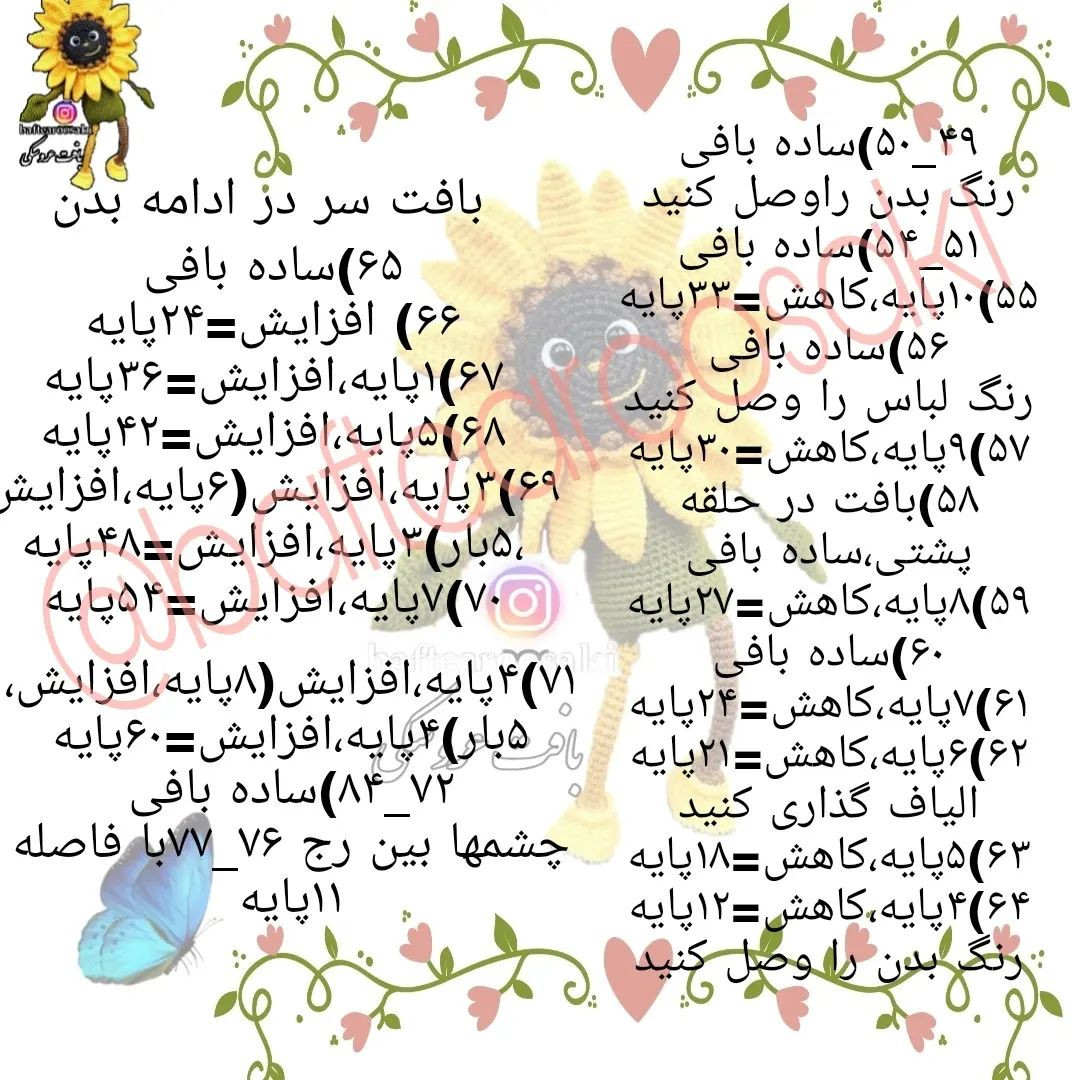 ۴۹_۵۰)ساده بافی
رنگ بدن راوصل کنید
۵۱_۵۴)ساده بافی
۵۵)۱۰پایه،کاهش=۳۳پایه
۵۶)ساده بافی
رنگ لباس را وصل کنید
۵۷)۹پایه،کاهش=۳۰پایه
۵۸)بافت در حلقه
پشتی،ساده بافی
۵۹)۸پایه،کاهش=۲۷پایه
۶۰)ساده بافی
۶۱)۷پایه،کاهش=۲۴پایه
۶۲)۶پایه،کاهش=۲۱پایه
الیاف گذاری کنید
۶۳)۵پایه،کاهش=۱۸پایه
۶۴)۴پایه،کاهش=۱۲پایه
رنگ بدن را وصل کنید
بافت سر در ادامه بدن
۶۵)ساده بافی
۶۶) افزایش=۲۴پایه
۶۷)۱پایه،افزایش=۳۶پایه
۶۸)۵پایه،افزایش=۴۲پایه
۶۹)۳پایه،افزایش(۶پایه،افزایش
،۵بار)۳پایه،افزایش=۴۸پایه
۷۰)۷پایه،افزایش=۵۴پایه
۷۱)۴پایه،افزایش(۸پایه،افزایش،
۵بار)۴پایه،افزایش=۶۰پایه
۷۲_۸۴)ساده بافی
چشمها بین رج ۷۶_۷۷با فاصله
۱۱پایه
@baftearoosaki
baftearoosaki
بافت عروسکی
baftearoosaki
بافت عروسکی